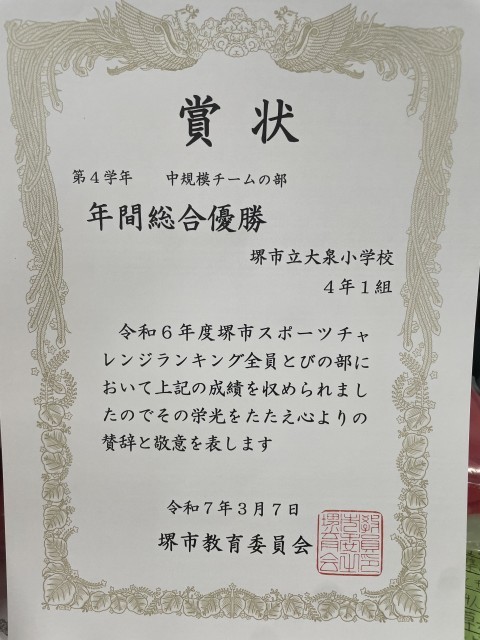 賞状
第４学年　中規模チームの部
年間総合優勝
堺市立大泉小学校
４年１組
令和６年度堺市スポーツチャ
レンジランキング全員とびの部に
おいて上記の成績を収められまし
たのでその栄光をたたえ心よりの
賛辞と敬意を表します
令和７年３月７日
堺市教育委員会